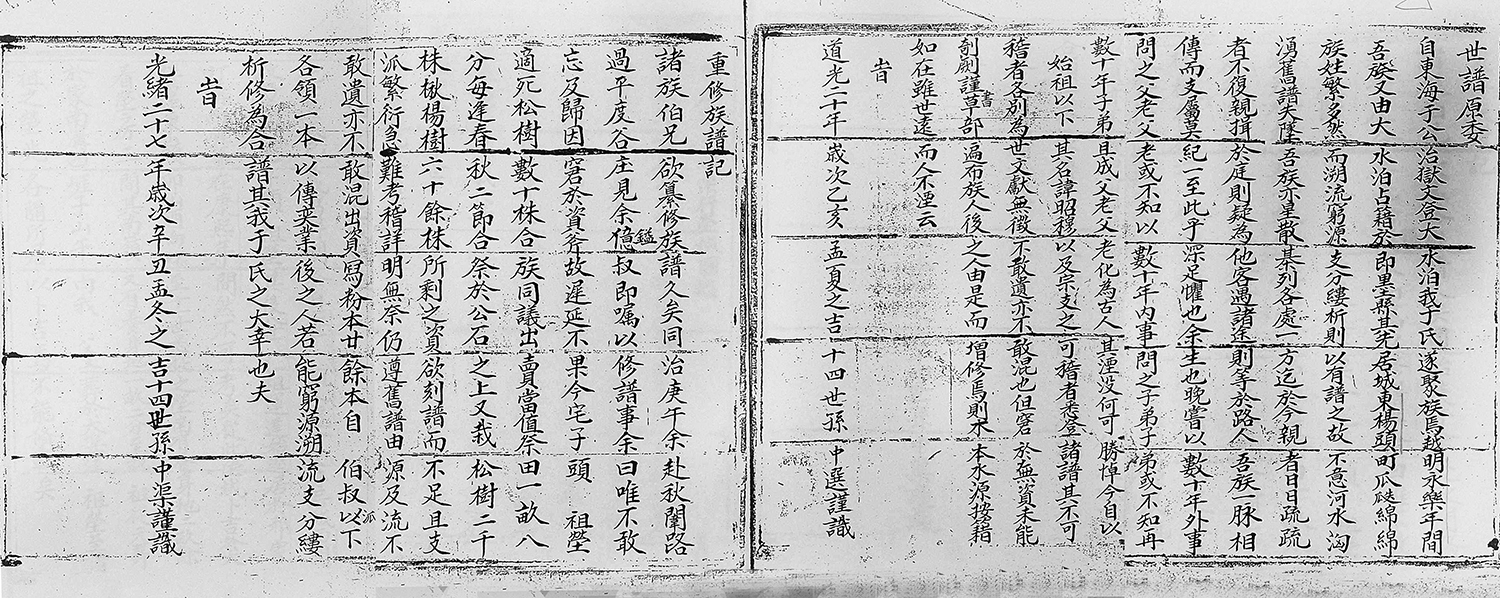 世譜原委
自東海于公治獄文登大水泊我于氏遂聚族焉越明永樂年間
吾族又由大水泊占籍於即墨縣其先居城東楊頭町瓜瓞綿綿
族姓繁多然而溯流窮源支分縷析則以有譜之故不意河水洶
湧舊譜失墜吾族亦星散棊列各處一方迄於今親者日日疏疏
者不復親揖於庭則疑為他客遇諸途則等於路人吾族一脉相
傳而支屬莫紀一至此乎深足懼也余生也晚嘗以數十年外事
問之父老父老或不知以數十年內事問之子弟子弟或不知再
數十年子弟且成父老父老化為古人其湮没何可勝悼今自以
始祖以下其名諱昭穆以及宗支之可稽者悉登諸譜其不可
稽者各別為世文獻無徵不敢遺亦不敢混也但窘於無資未能
剞劂謹草書部遍布族人後之人由是而增修焉則木本水源按籍
如在雖世遠而人不湮云
旹
道光二十年歲次乙亥孟夏之吉十四世孫中選謹識
重修族譜記
諸族伯兄欲纂修族譜久矣同治庚午余赴秋闈路
過平度谷庄見余億鎰叔即嘱以修譜事余曰唯不敢
忘及歸因窘於資斧故遲延不果今宅子頭祖塋
適死松樹數十株合族同議出賣當值祭田一畝八
分每逢春秋二節合祭於公石之上又栽松樹二千
株楸楊樹六十餘株所剩之資欲刻譜而不足且支
派繁衍急難考稽詳明無奈仍遵舊譜由源及流不
敢遺亦不敢混出資寫粉本廿餘本自伯叔以下派
各領一本以傳奕業後之人若能窮源溯流支分縷
析修為合譜其我于氏之大幸也夫
旹
光緒二十七年歲次辛丑孟冬之吉十四世孫中渠謹識